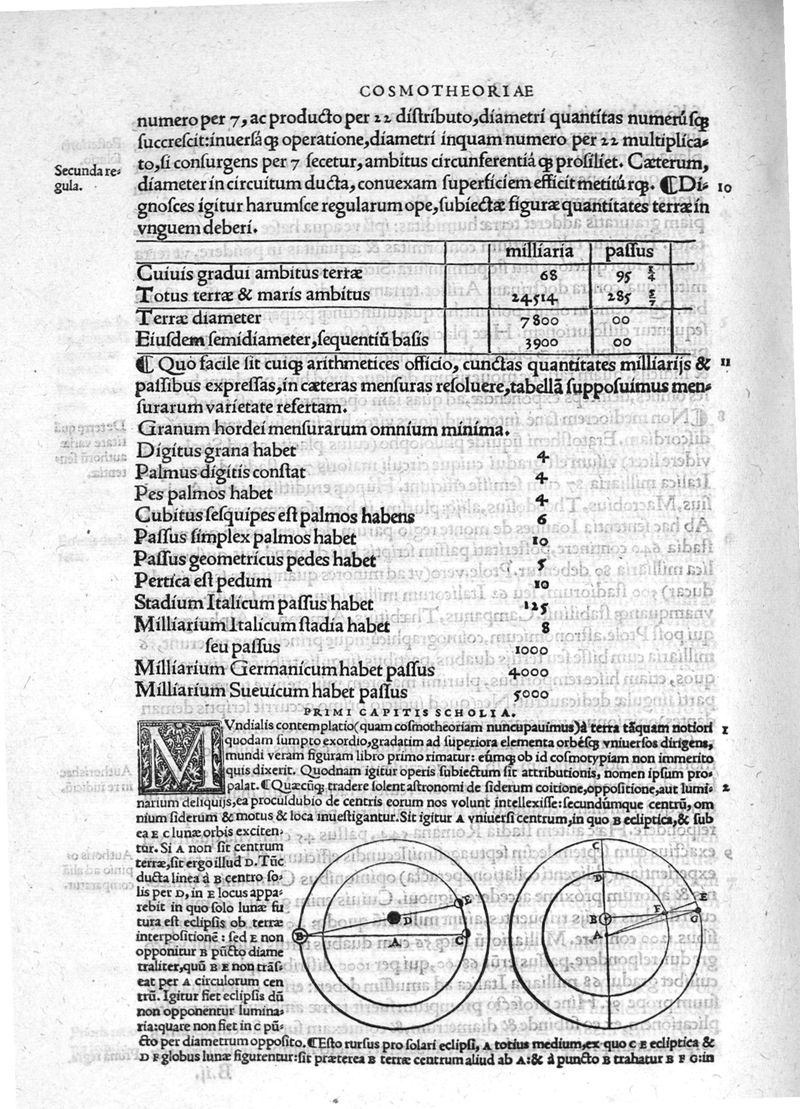 COSMOTHEORIAE
numero per 7, ac producto per 22 distributo, diametri quantitas numerũ sɋ
succrescit: inuersáɋ operatione, diametri inquam numero per 22 multiplica-
Secunda re-
gula.
to, si consurgens per 7 secetur, ambitus circunferentiáɋ prosiliet. Cæterum,
diameter in circuitum ducta, conuexam superficiem efficit metitúrɋ. ¶ Di-
10
gnosces igitur harumsce regularum ope, subiectæ figuræ quantitates terræ in
vnguem deberi.
milliaria passus
Cuiuis gradui ambitus terræ 68 95 5/4
Totus terræ & maris ambitus 24514 285 5/7
Terræ diameter 7800 00
Eiusdem semidiameter, sequentiũ basis 3900 00
¶ Quo facile sit cuiɋ arithmetices officio, cunctas quantitates milliarijs &
11
passibus expressas, in cæteras mensuras resoluere, tabellã supposuimus men-
surarum varietate refertam.
Granum hordei mensurarum omnium minima.
Digitus grana habet 4
Palmus digitis constat 4
Pes palmos habet 4
Cubitus sesquipes est palmos habens 6
Passus simplex palmos habet 10
Passus geometricus pedes habet 5
Pertica est pedum 10
Stadium Italicum passus habet 125
Milliarium Italicum stadia habet 8
seu passus 1000
Milliarium Germanicum habet passus 4000
Milliarium Sueuicum habet passus 5000
PRIMI CAPITIS SCHOLIA.
MVndialis contemplatio (quam cosmotheoriam nuncupauimus) à terra tãquam notiori
1
quodam sumpto exordio, gradatim ad superiora elementa orbésɋ vniuersos dirigens,
mundi veram figuram libro primo rimatur: eúmɋ ob id cosmotypiam non immerito
quis dixerit. Quodnam igitur operis subiectum sit attributionis, nomen ipsum pro-
palat. ¶ Quæcũɋ tradere solent astronomi de siderum coitione, oppositione, aut lumi-
2
narium deliquijs, ea proculdubio de centris eorum nos volunt intellexisse: secundúmque centrũ, om
nium siderum & motus & loca inuestigantur. Sit igitur A vniuersi centrum, in quo B ecliptica, & sub
ea E C lunæ orbis exciten-
tur. Si A non sit centrum
terræ, sit ergo illud D. Tũc
ducta linea à B centro so-
lis per D, in E locus appa-
rebit in quo solo lunæ fu
tura est eclipsis ob terræ
interpositionẽ: sed E non
opponitur B pũcto diame
traliter, quũ B E non trãs-
eat per A circulorum cen
trũ. Igitur fiet eclipsis dũ
non opponentur lumina-
ria: quare non fiet in C pũ-
B D E A C
C D B A F E G
cto per diametrum opposito. ¶ Esto rursus pro solari eclipsi, A totius medium, ex quo C E ecliptica &
D F globus lunæ figurentur: sit præterea B terræ centrum aliud ab A: & à puncto B trahatur B F G: in